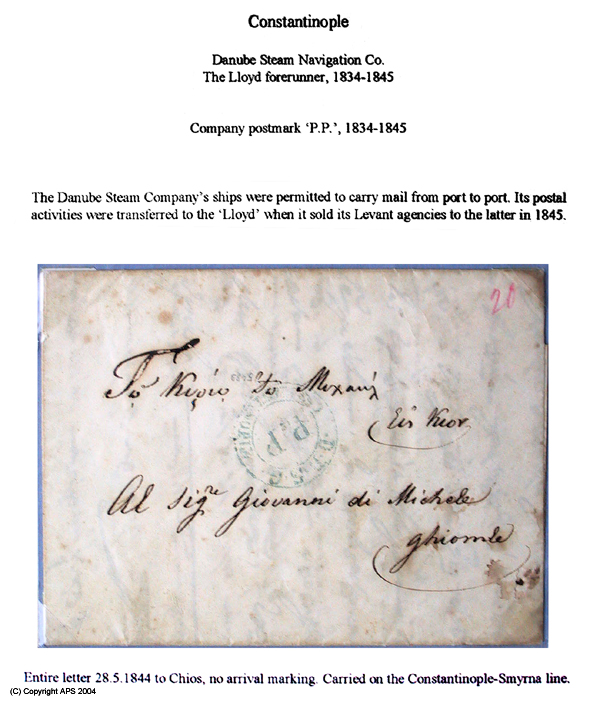 Constantinople
Danube Steam Navigation Co.
The Lloyd forerunner, 1834-1845
Company postmark 'P.P.', 1834-1845
The Danube Steam Company's ships were permitted to carry mail from port to port. Its postal
activities were transferred to the 'Lloyd' when it sold its Levant agencies to the latter in 1845.
20
Μιχαήλ
Εἰς Κιον
P.P.
Al Sigre Giovanni di Michele
Entire letter 28.5.1844 to Chios, no arrival marking. Carried on the Constantinople-Smyrna line.
(C) Copyright APS 2004